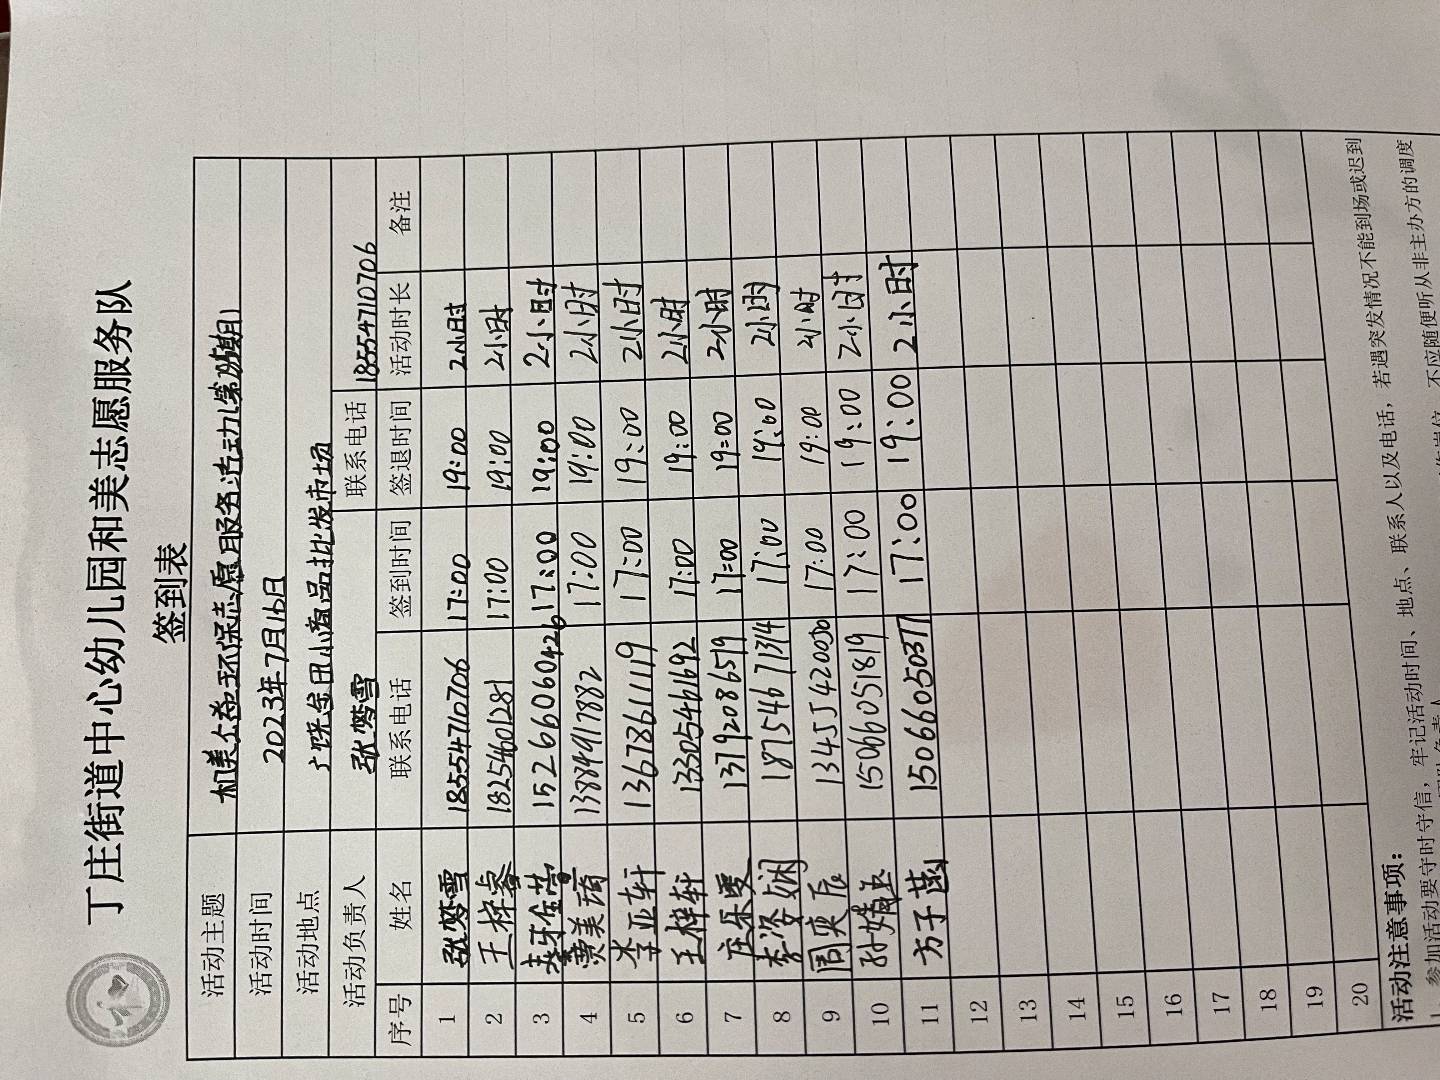 丁庄街道中心幼儿园和美志愿服务队
签到表
活动主题 和美公益环保志愿服务活动(第 期)
活动时间 2023年7月16日
活动地点 广饶金田小商品批发市场
活动负责人 张 雪 联系电话 18554710706
序号 姓名 联系电话 签到时间 签退时间 活动时长 备注
1 张 雪 18554710706 17:00 19:00 2小时
2 王梓睿 18254601281 17:00 19:00 2小时
3 15266060426 17:00 19:00 2小时
4 美琦 13884917882 17:00 19:00 2小时
5 李亚轩 13678611119 17:00 19:00 2小时
6 王梓轩 13305461692 17:00 19:00 2小时
7 庄乐雯 13792086519 17:00 19:00 2小时
8 李姿娴 18754671314 17:00 19:00 2小时
9 周奕辰 17:00 19:00 2小时
10 孙 15066051819 17:00 19:00 2小时
11 方子菡 15066050377 17:00 19:00 2小时
12
13
14
15
16
17
18
19
20
活动注意事项:
1、参加活动要守时守信，牢记活动时间、地点、联系人以及电话，若遇突发情况不能到场或迟到
不应随便听从非主办方的调度